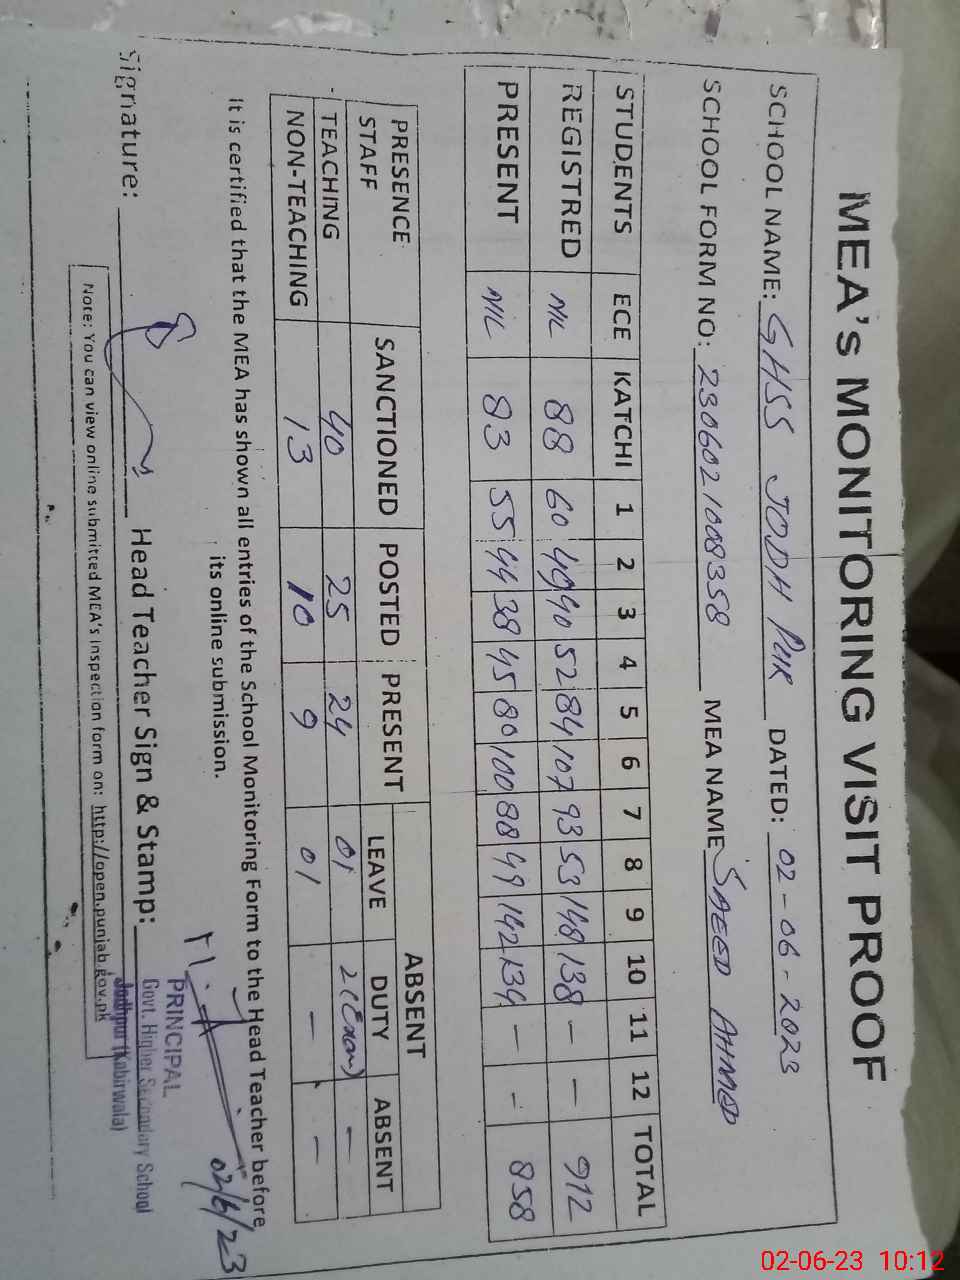 MEA's MONITORING VISIT PROOF
SCHOOL NAME: GHSS JODH PUR DATED: 02-06-2023
SCHOOL FORM NO: 2306021008358 MEA NAME SAEED AHMED
STUDENTS ECE KATCHI 1 2 3 4 5 6 7 8 9 10 11 12 TOTAL
REGISTRED NIL 88 60 49 40 52 84 107 93 53 148 138 - - 912
PRESENT NIL 83 55 44 38 45 80 100 88 49 142 134 - - 858
PRESENCE STAFF SANCTIONED POSTED PRESENT ABSENT
LEAVE DUTY ABSENT
TEACHING 40 25 24 01 2(Exam) -
NON-TEACHING 13 10 9 01 - -
It is certified that the MEA has shown all entries of the School Monitoring Form to the Head Teacher before
its online submission.
02/6/23
PRINCIPAL
Govt. Higher Secondary School
Jodhpur (Kabirwala)
Signature: Head Teacher Sign & Stamp:
Note: You can view online submitted MEA's inspection form on: http://open.punjab.gov.pk
02-06-23 10:12